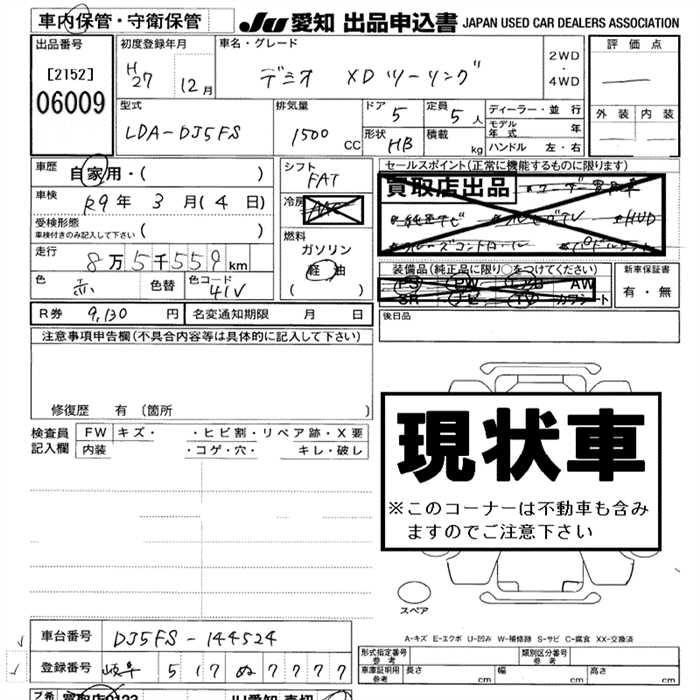 車内保管・守衛保管
JU愛知 出品申込書 JAPAN USED CAR DEALERS ASSOCIATION
出品番号
[2152]
06009
初度登録年月
H27 12月
車名・グレード
デミオ XDツーリング
2WD・4WD
評価点
外装 内装
型式
LDA-DJ5FS
排気量
1500CC
ドア 5
形状 HB
定員 5人
積載 kg
ディーラー・並行
モデル年式 年
ハンドル 左・右
車歴 自家用・( )
車検 R9年 3月(4日)
受検形態
車検付きのみ記入して下さい ( )
走行 8万5千559km
色 赤 色替 色コード 41V
シフト
FAT
冷房
AAC
燃料
ガソリン
軽油
( )
セールスポイント(正常に機能するものに限ります)
買取店出品 *ユーザー買取車
*純正ナビ *フルセグTV *HUD
*クルーズコントロール *パドルシフト
装備品(純正品に限り○をつけてください)
PS PW エアB AW
SR ナビ TV カワシート
新車保証書
有・無
R券 9,130円 名変通知期限 月 日
後日品
注意事項申告欄(不具合内容等は具体的に記入して下さい)
修復歴 有(箇所 )
検査員記入欄
FW キズ・ ・ヒビ割・リペア跡・X要
内装 ・コゲ・穴・ キレ・破レ
現状車
※このコーナーは不動車も含み
ますのでご注意下さい
スペア
A-キズ E-エクボ U-凹み W-補修跡 S-サビ C-腐食 XX-交換済
車台番号 DJ5FS-144524
登録番号 岐阜 517 ぬ 7777
形式指定番号 参考
類別区分番号 参考
車庫証明用 参考 長さ cm 幅 cm 高さ cm
買取店0123
JU愛知 売切